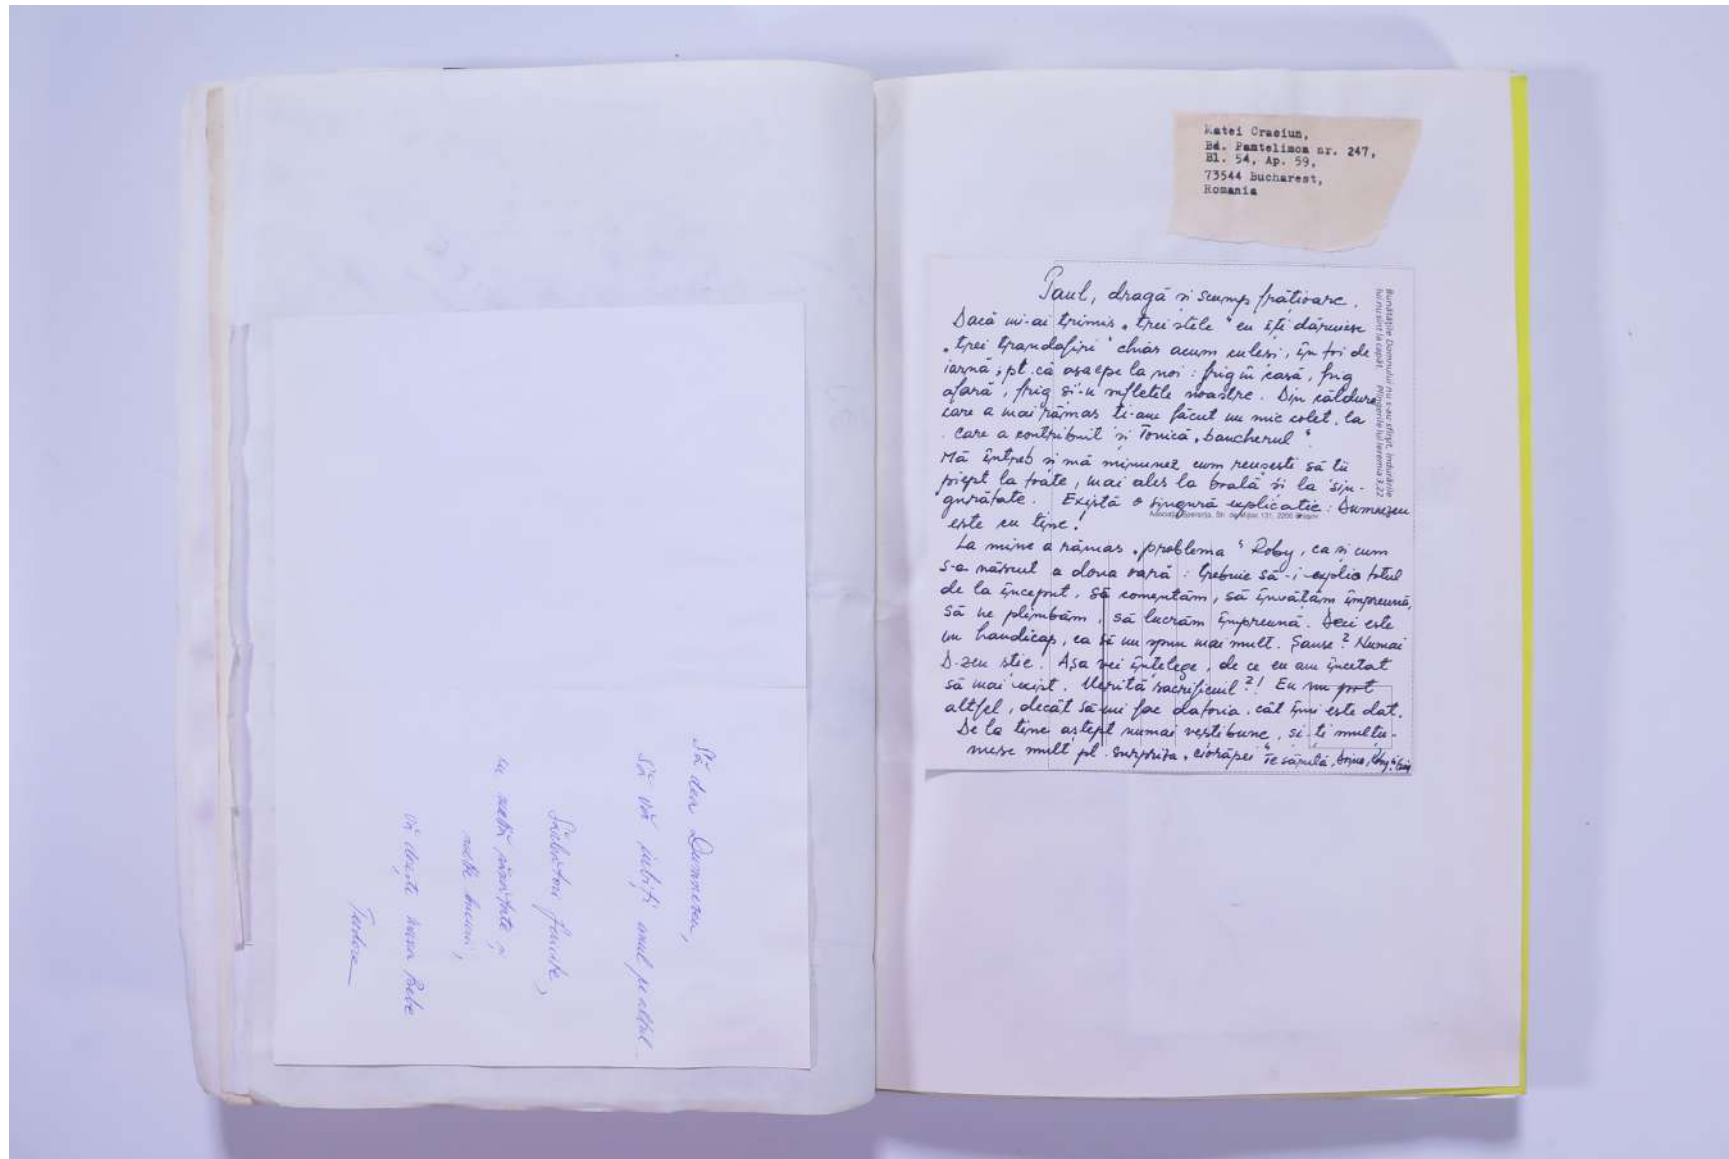 Să dea Dumnezeu,
Să vă iubiți unul pe altul
Sărbători fericite,
cu multă sănătate și
multe bucurii,
vă dorește
Tudora
Matei Craciun,
Bd. Pantelimon nr. 247,
Bl. 54, Ap. 59,
73544 Bucharest,
Romania
Paul, dragă și scump frățioare.
Dacă mi-ai trimis „trei stele" eu îți dăruiesc
„trei trandafiri" chiar acum culeși, în toi de
iarnă, pt. că așa e pe la noi: frig în casă, frig
afară, frig și-n sufletele noastre. Din căldura
care a mai rămas ți-am făcut un mic colet, la
care a contribuit și „baucherul"
Mă întreb și mă minunez cum reușești să ții
piept la toate, mai ales la boală și la sin-
gurătate. Există o singură explicație: Dumnezeu
este cu tine!
La mine a rămas „problema" Roby, ca și cum
s-a născut a doua oară: trebuie să-i explic totul
de la început, să comentăm, să învățăm împreună,
să ne plimbăm, să lucrăm împreună. Deci este
un handicap, ca să nu spun mai mult. Șanse? Numai
D-zeu știe. Așa vei înțelege, de ce eu am încetat
să mai exist. Merită sacrificiul?! Eu nu pot
altfel, decât să-mi fac datoria, cât îmi este dat.
De la tine aștept numai vești bune, și-ți mulțu-
mesc mult pt. surpriza „ciorăpei" Te sărută,
Bunătățile Domnului nu s-au sfîrșit, îndurările
lui nu sînt la capăt. Plîngerile lui Ieremia 3,22